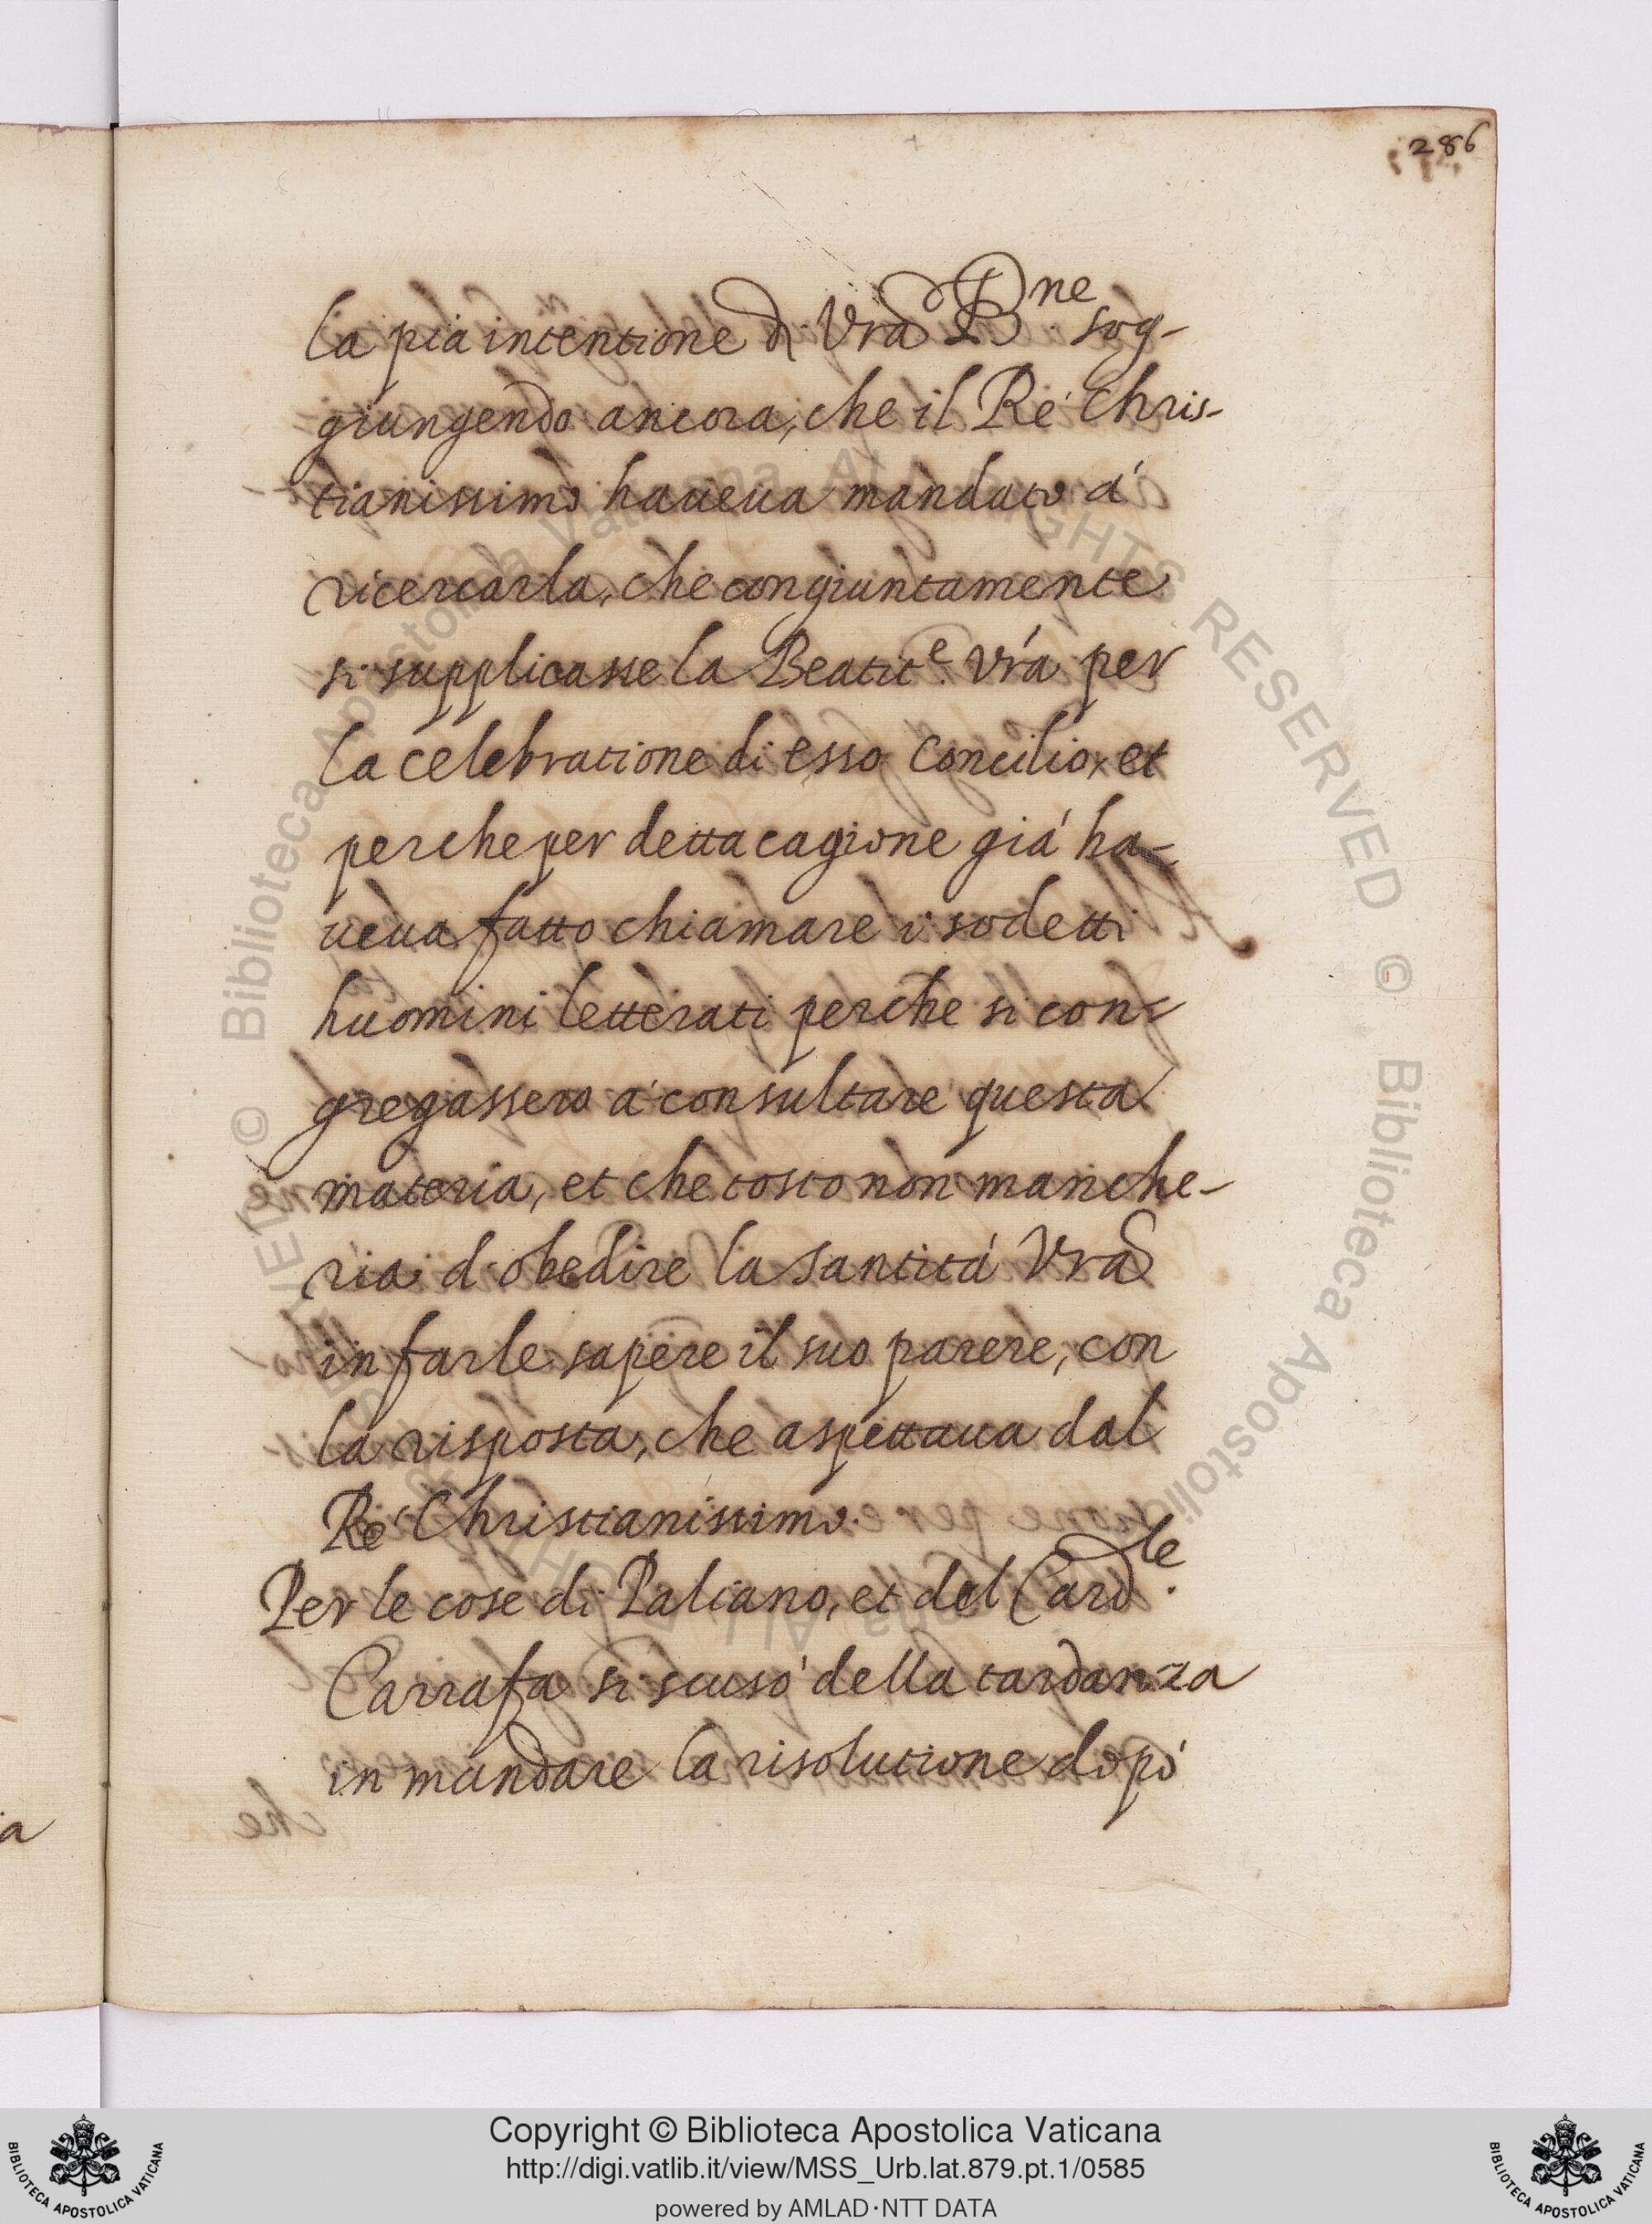 286
la pia intentione di Vra B.ne sog-
giungendo ancora, che il Ré Chris-
tianissimo haueua mandato á
ricercarla, che congiuntamente
si supplicasse la Beatit.e Vrá per
la celebratione di esso Concilio, et
perche per detta cagione giá ha-
ueua fatto chiamare i sodetti
huomini letterati perche si con-
gregassero a consultare questa
materia, et che tosto non manche-
ria d'obedire la santitá Vra
in farle sapere il suo parere, con
la risposta, che aspettaua dal
Ré Christianissimo.
Per le cose di Paliano, et del Card.le
Carrafa si scusó della tardanza
in mandare la risolutione dopó
Copyright © Biblioteca Apostolica Vaticana
http://digi.vatlib.it/view/MSS_Urb.lat.879.pt.1/0585
powered by AMLAD·NTT DATA